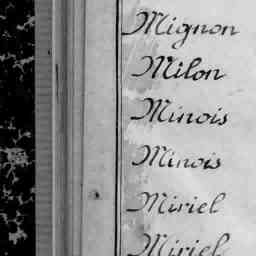 Mignon
Milon
Minois
Minois
Miriel
Miriel